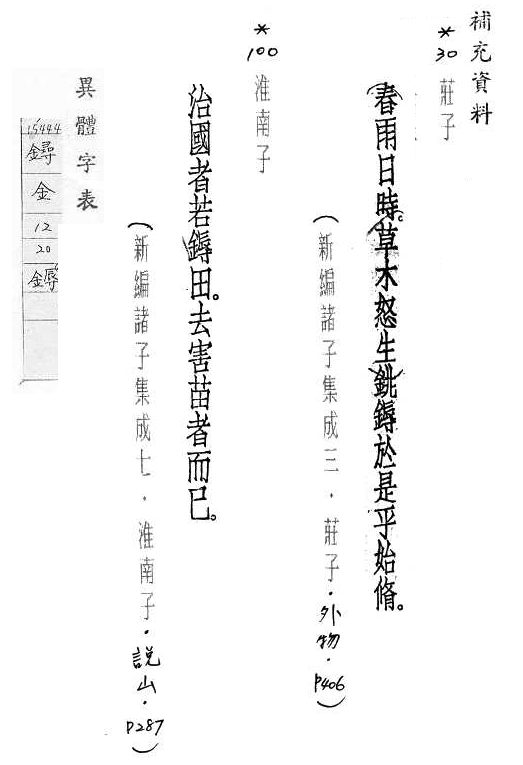 補充資料
*30 莊子
(春雨日時。草木怒生)銚鎒於是乎始脩。
(新編諸子集成三．莊子．外物．P406)
*100 淮南子
治國者若鎒田。去害苗者而已。
(新編諸子集成七．淮南子．說山．P287)
異體字表
15444
金
12
20
鎒